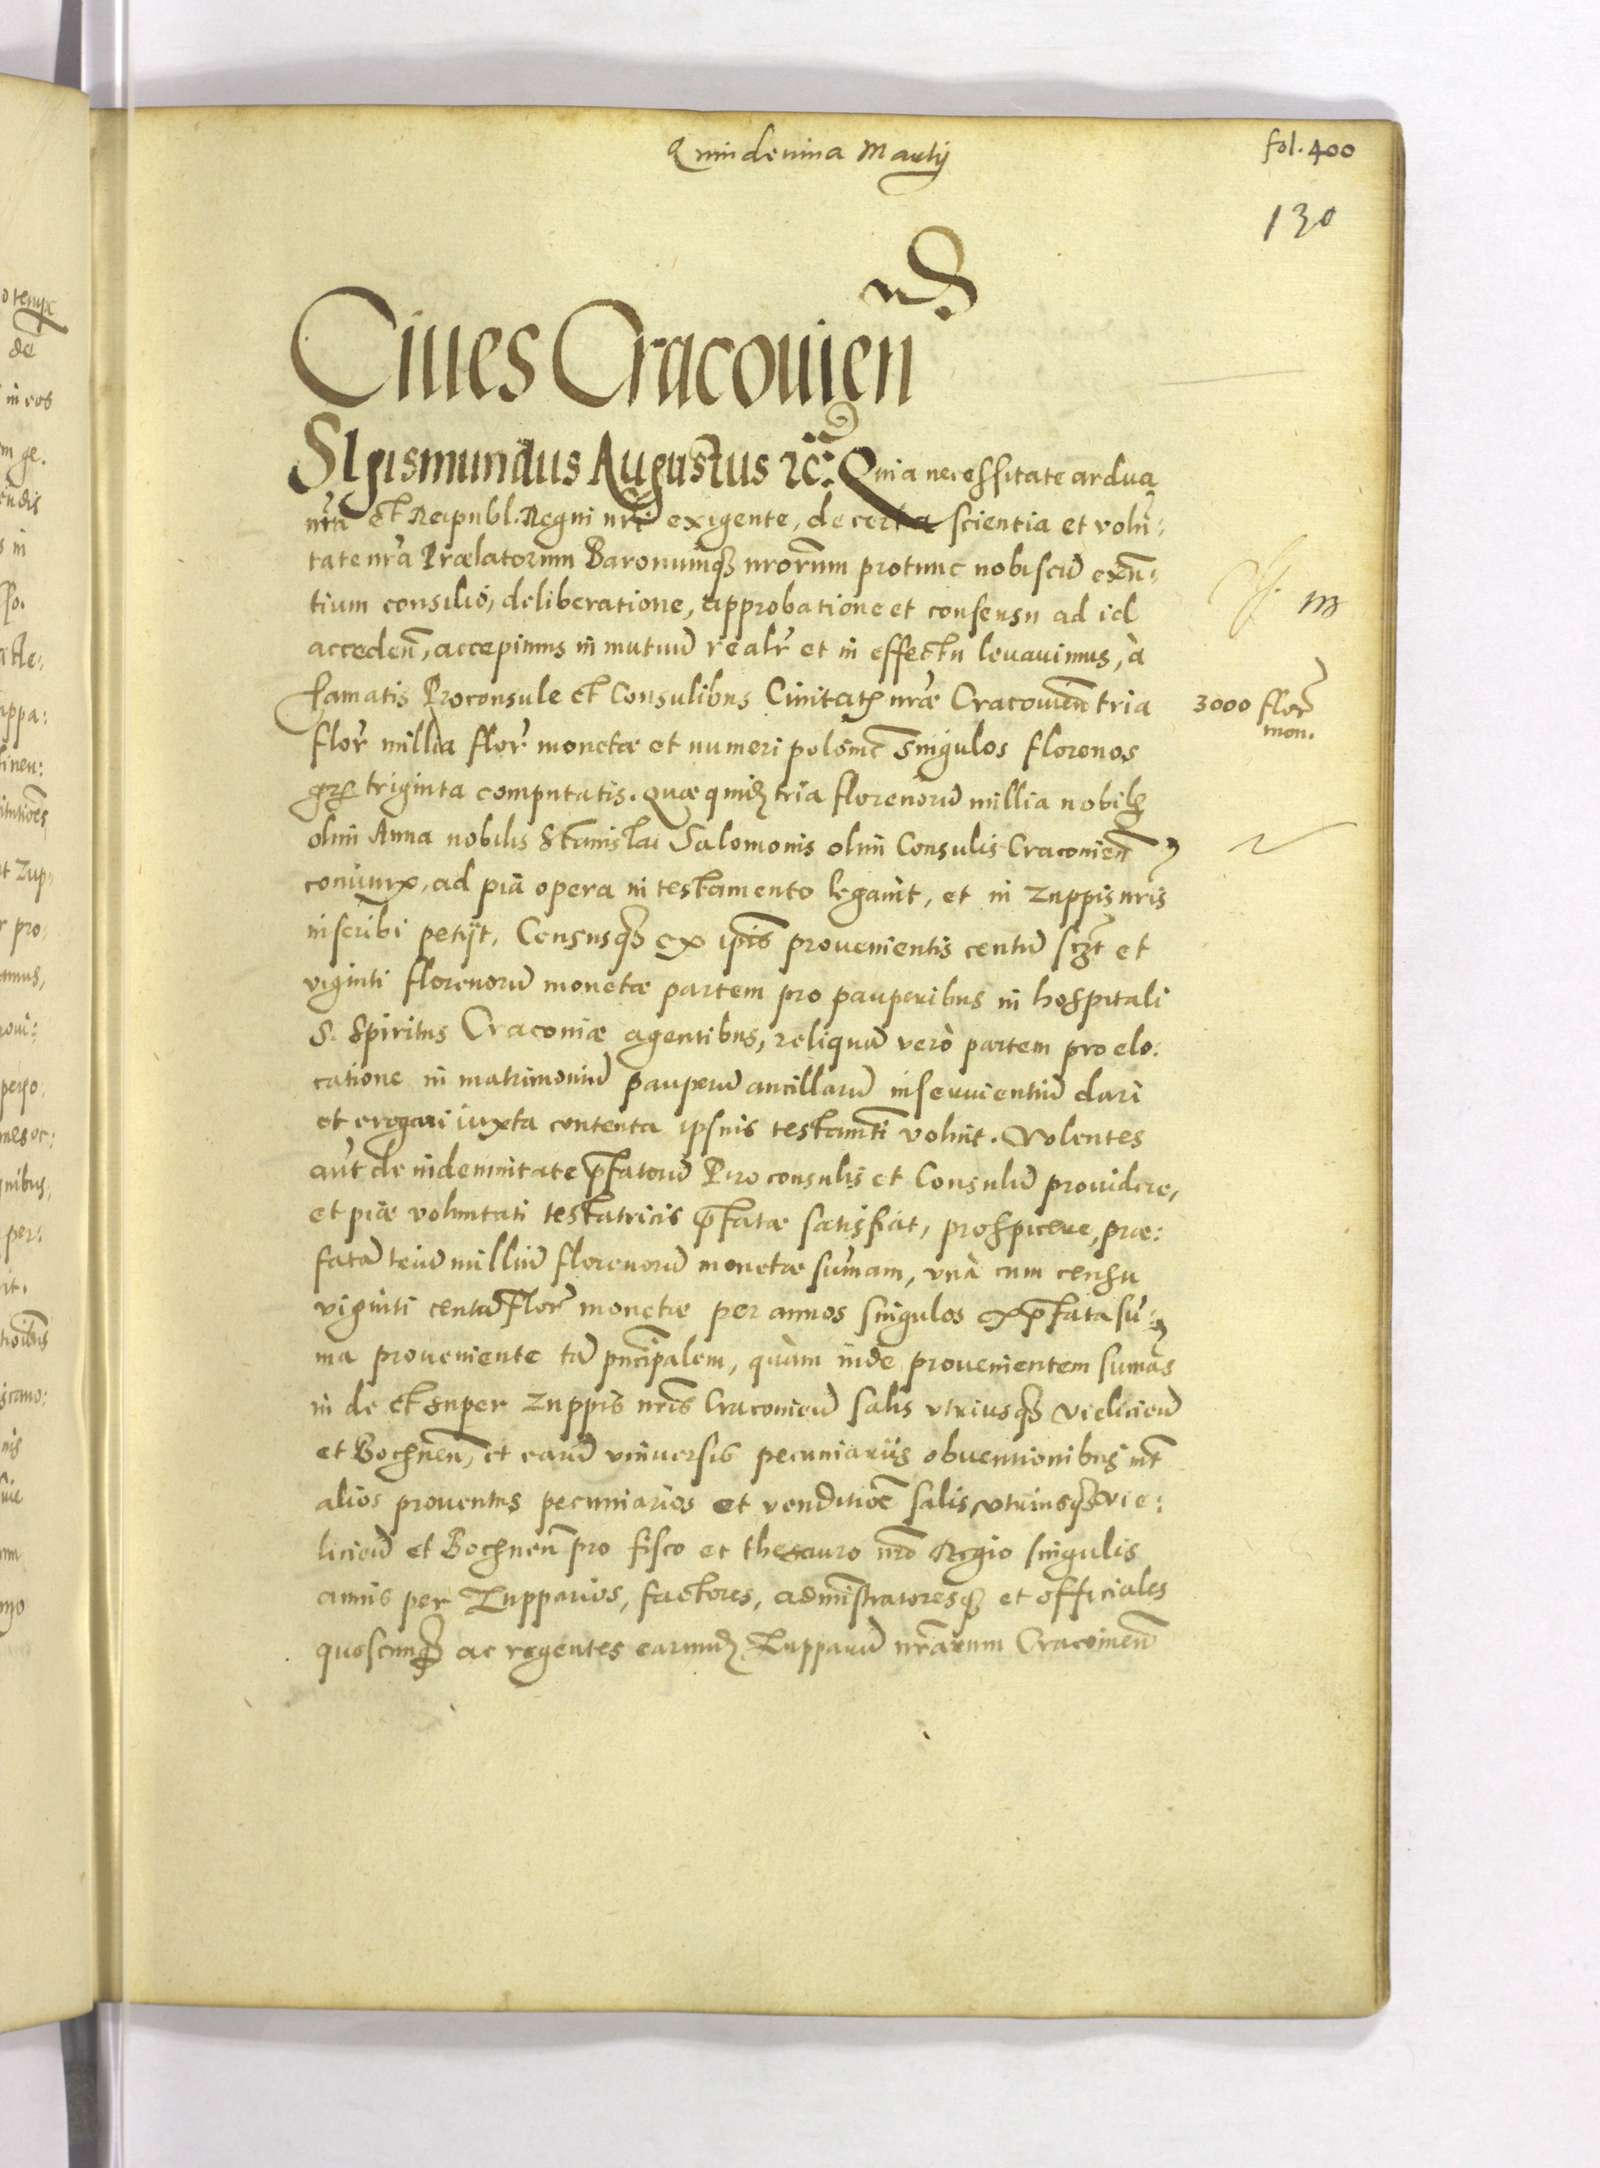 Quindenina Martij
fol. 400
130
Ciues Cracouien̄
SIgismundus Augustus ꝛc̃: Quia necessitate ardua
nr̃a et Reipubl. Regni nr̃i exigente, de certa scientia et volũ:
tate nr̃a Prælatorum Baronumqꝫ nrorũm protunc nobiscũ exñ:
tium consilio, deliberatione, approbatione et consensu ad id
acceden̄, accepimus in mutuũ realr̃ et in effectu leuauimus, à
famatis Proconsule et Consulibus Ciuitatꝭ nr̃æ Cracouien̄ tria
3000 flor̃
mon.
flor̃ millia flor̃ monetæ et numeri polonic̃ singulos florenos
gr̃ triginta computatis. Quæ quidꝫ tria florenorũ millia nobilꝭ
olim Anna nobilis Stanislai Salomonis olim Consulis Cracouien̄
coniunx, ad pia opera in testamento legauit, et in Zuppis nris
inscribi petijt, Censusqꝫ ex ip̃is prouenientis centũ sczt̃ et
viginti florenorũ monetæ partem pro pauperibus in hospitali
S. Spiritus Cracouiæ agentibus, reliquã verò partem pro elo:
catione in matrimoniũ pauperũ ancillarũ inseruientiũ dari
et erogari iuxta contenta ipsius testam̃ti voluit. Volentes
aũt de indemnitate p̃fatorũ Proconsulis et Consulũ prouidere,
et piæ voluntati testatricis p̃fatæ satisfiat, prospicere, præ:
fatã triũ milliũ florenorũ monetæ sum̃am, vnà cum censu
viginti centũ flor̃ monetæ per annos singulos ex p̃fata sum̃:
ma proueniente tã pñcipalem, quàm inde prouenientem sum̃as
in de et super Zuppis nr̃is Cracouien̄ salis vtriusqꝫ Vielicien̄
et Bochnen̄, et earũ vniuersis pecuniarijs obuentionibus int̃
alios prouentus pecuniarios et venditioẽ salis vtriusqꝫ Vie:
licien̄ et Bochnen̄ pro fisco et thesauro nr̃o Regio singulis
annis per Zupparios, factores, adm̃istratoresqꝫ et officiales
quoscunqꝫ ac regentes earundꝫ Zupparũ nr̃arum Cracouien̄